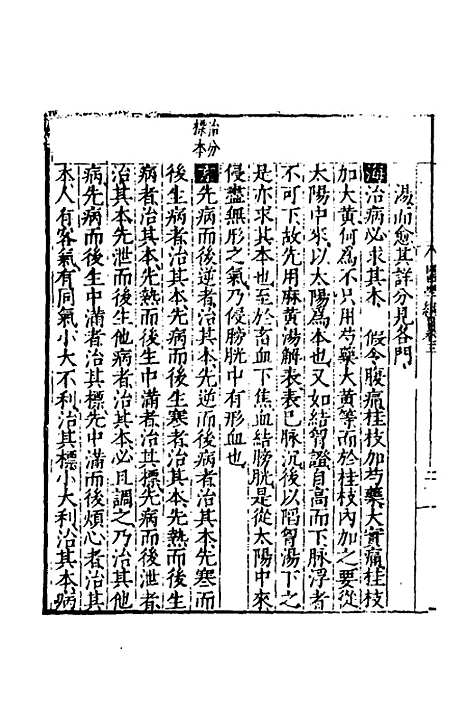 湯而愈其詳分見各門
海治病必求其本　假令腹痛桂枝加芍藥大實痛桂枝
加大黃何為不只用芍藥大黃等而於桂枝內加之要從
太陽中來以太陽為本也又如結胷證自高而下脉浮者
不可下故先用麻黃湯解表表已脉沉後以陷胷湯下之
是亦求其本也至於畜血下焦血結膀胱是從太陽中來
侵盡無形之氣乃侵膀胱中有形血也
治分
標本
素先病而後逆者治其本先逆而後病者治其本先寒而
後生病者治其本先病而後生寒者治其本先熱而後生
病者治其本先熱而後生中滿者治其標先病而後泄者
治其本先泄而後生他病者治其本必且調之乃治其他
病先病而後生中滿者治其標先中滿而後煩心者治其
本人有客氣有同氣小大不利治其標小大利治其本病